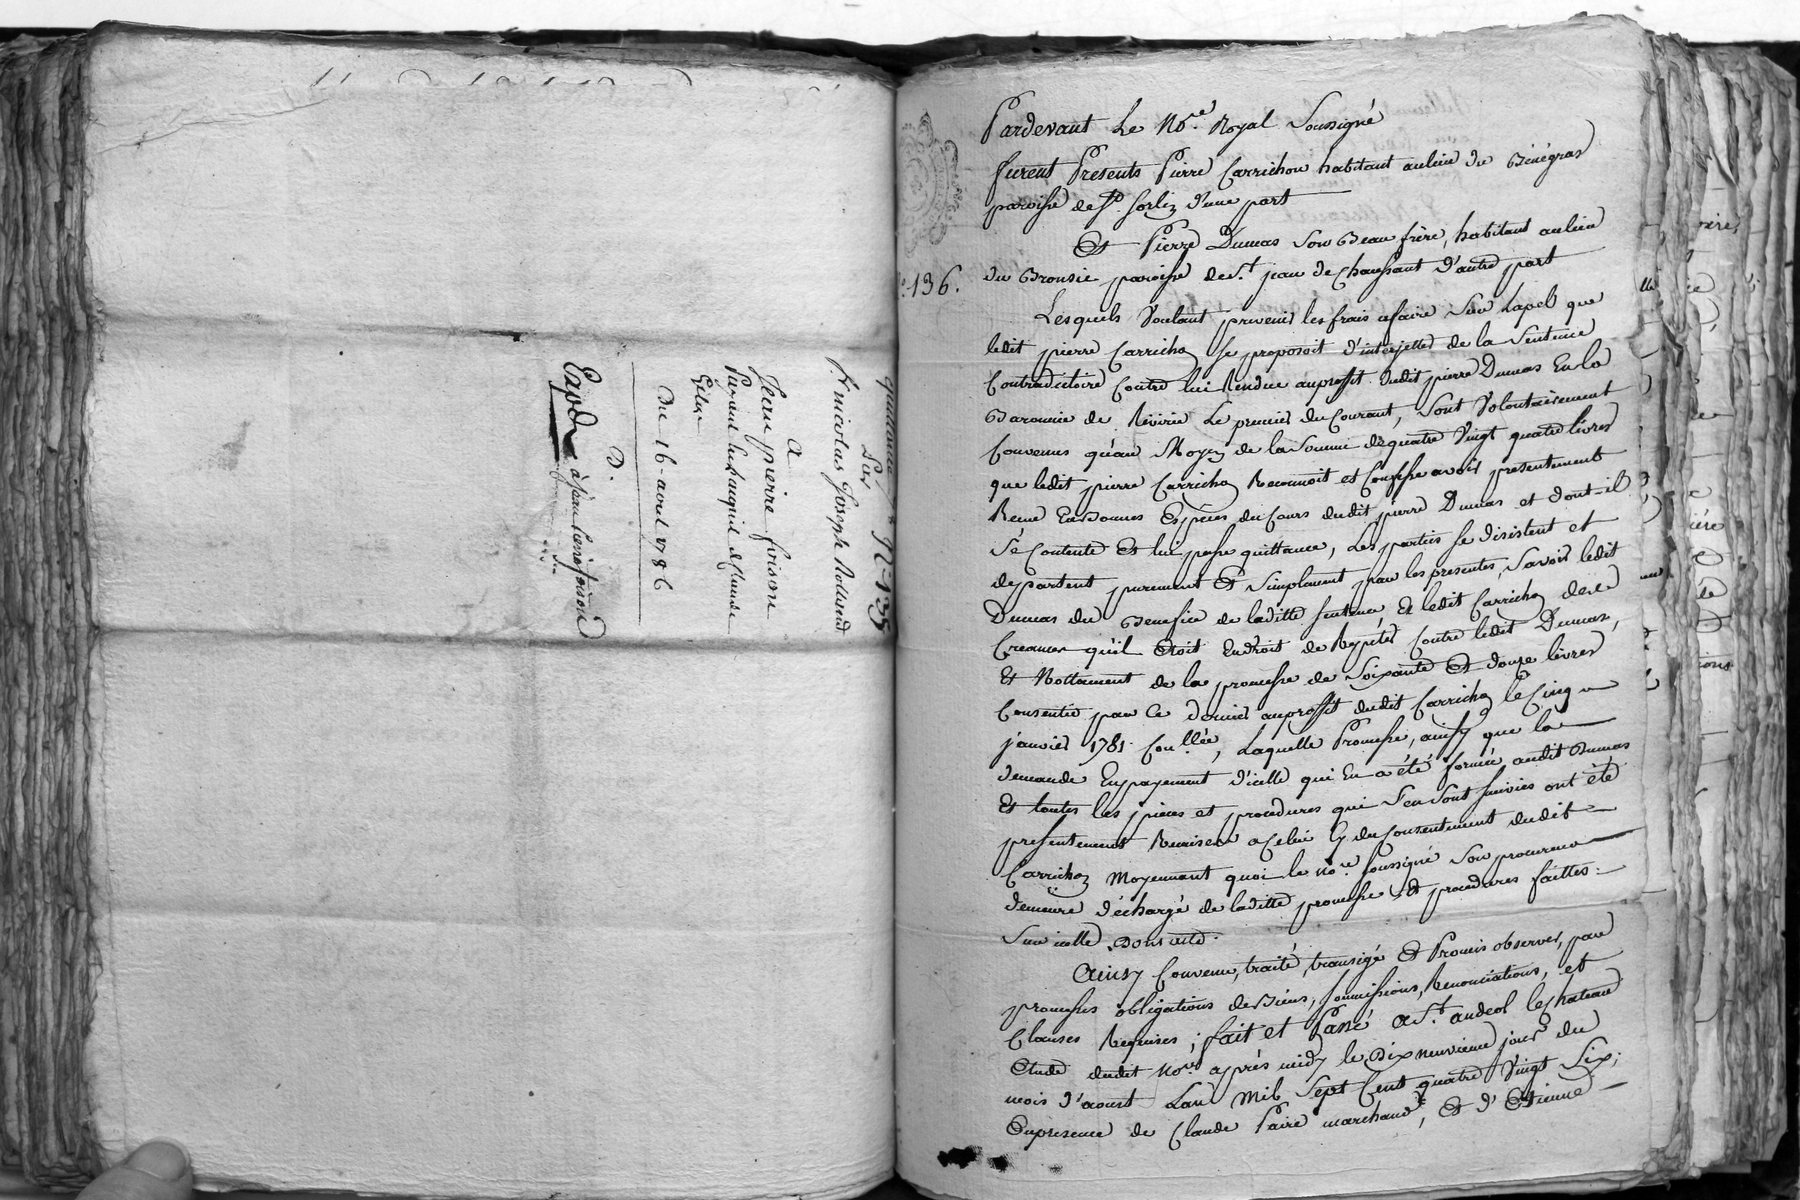 quittance N° 135
Par
Sr nicolas Joseph Rolland
A
Jean pierre foison
Du 16 avril 1786
D.
à jean pierre foison
Pardevant Le No.re Royal Soussigné
furent Presents Pierre Carrichon habitant au lieu du Bénégras
paroisse de St. Sorlin d'une part
Et Pierre Dumas Son Beau frère, habitant au lieu
136.
du Bronsie paroisse de St. jean de Chaussant d'autre part
Lesquels Voulant prevenir les frais a faire Sur Lapel que
ledit pierre Carrichon se proposoit d'interjetter de la Sentence
Contradictoire Contre lui Rendue au proffit dudit pierre Dumas En la
Baronnie de Rivirie Le premier du Courant, Sont Volontairement
Convenus qu'au Moyen de la Somme de quatre Vingt quatre livres
que ledit pierre Carrichon Reconnoit et Confesse avoir presentement
Receu En Bonnes Espèces du Cours dudit pierre Dumas et dont-il
Se Contente Et lui passe quittance, Les parties se disistent et
departent purement Et Simplement par les presentes, Savoir ledit
Dumas du Benefice de laditte Sentence Et ledit Carrichon des
Creances qu'il Etoit En droit de Repéter Contre ledit Dumas,
Et Nottament de la promesse de Soixante Et douze livres
Consentie par Ce dernier au proffit dudit Carrichon le Cinq
janvier 1781 Con.llée, Laquelle Promesse, ainsy que la
demande En payement d'icelle qui En a été formée audit Dumas
Et toutes les pieces et procedures qui S'en Sont Suivies ont été
presentement Remises a Celui Cy du Consentement dudit
Carrichon Moyennant quoi le no.re Soussigné Son procureur
demeure déchargé de laditte promesse Et procedures faittes
Sur icelle. Dont acte.
Ainsy Convenu, traité, transigé Et Promis observer, par
promesses obligations de Biens, Soumissions, Renonciations, et
Clauses Requises; fait et Passé a St. andeol le chateau
Etude dudit No.re après midy le Dix neuvieme jour du
mois d'aoust Lan Mil Sept Cent quatre Vingt Six;
En presence de Claude Paire marchand, Et d'Etienne